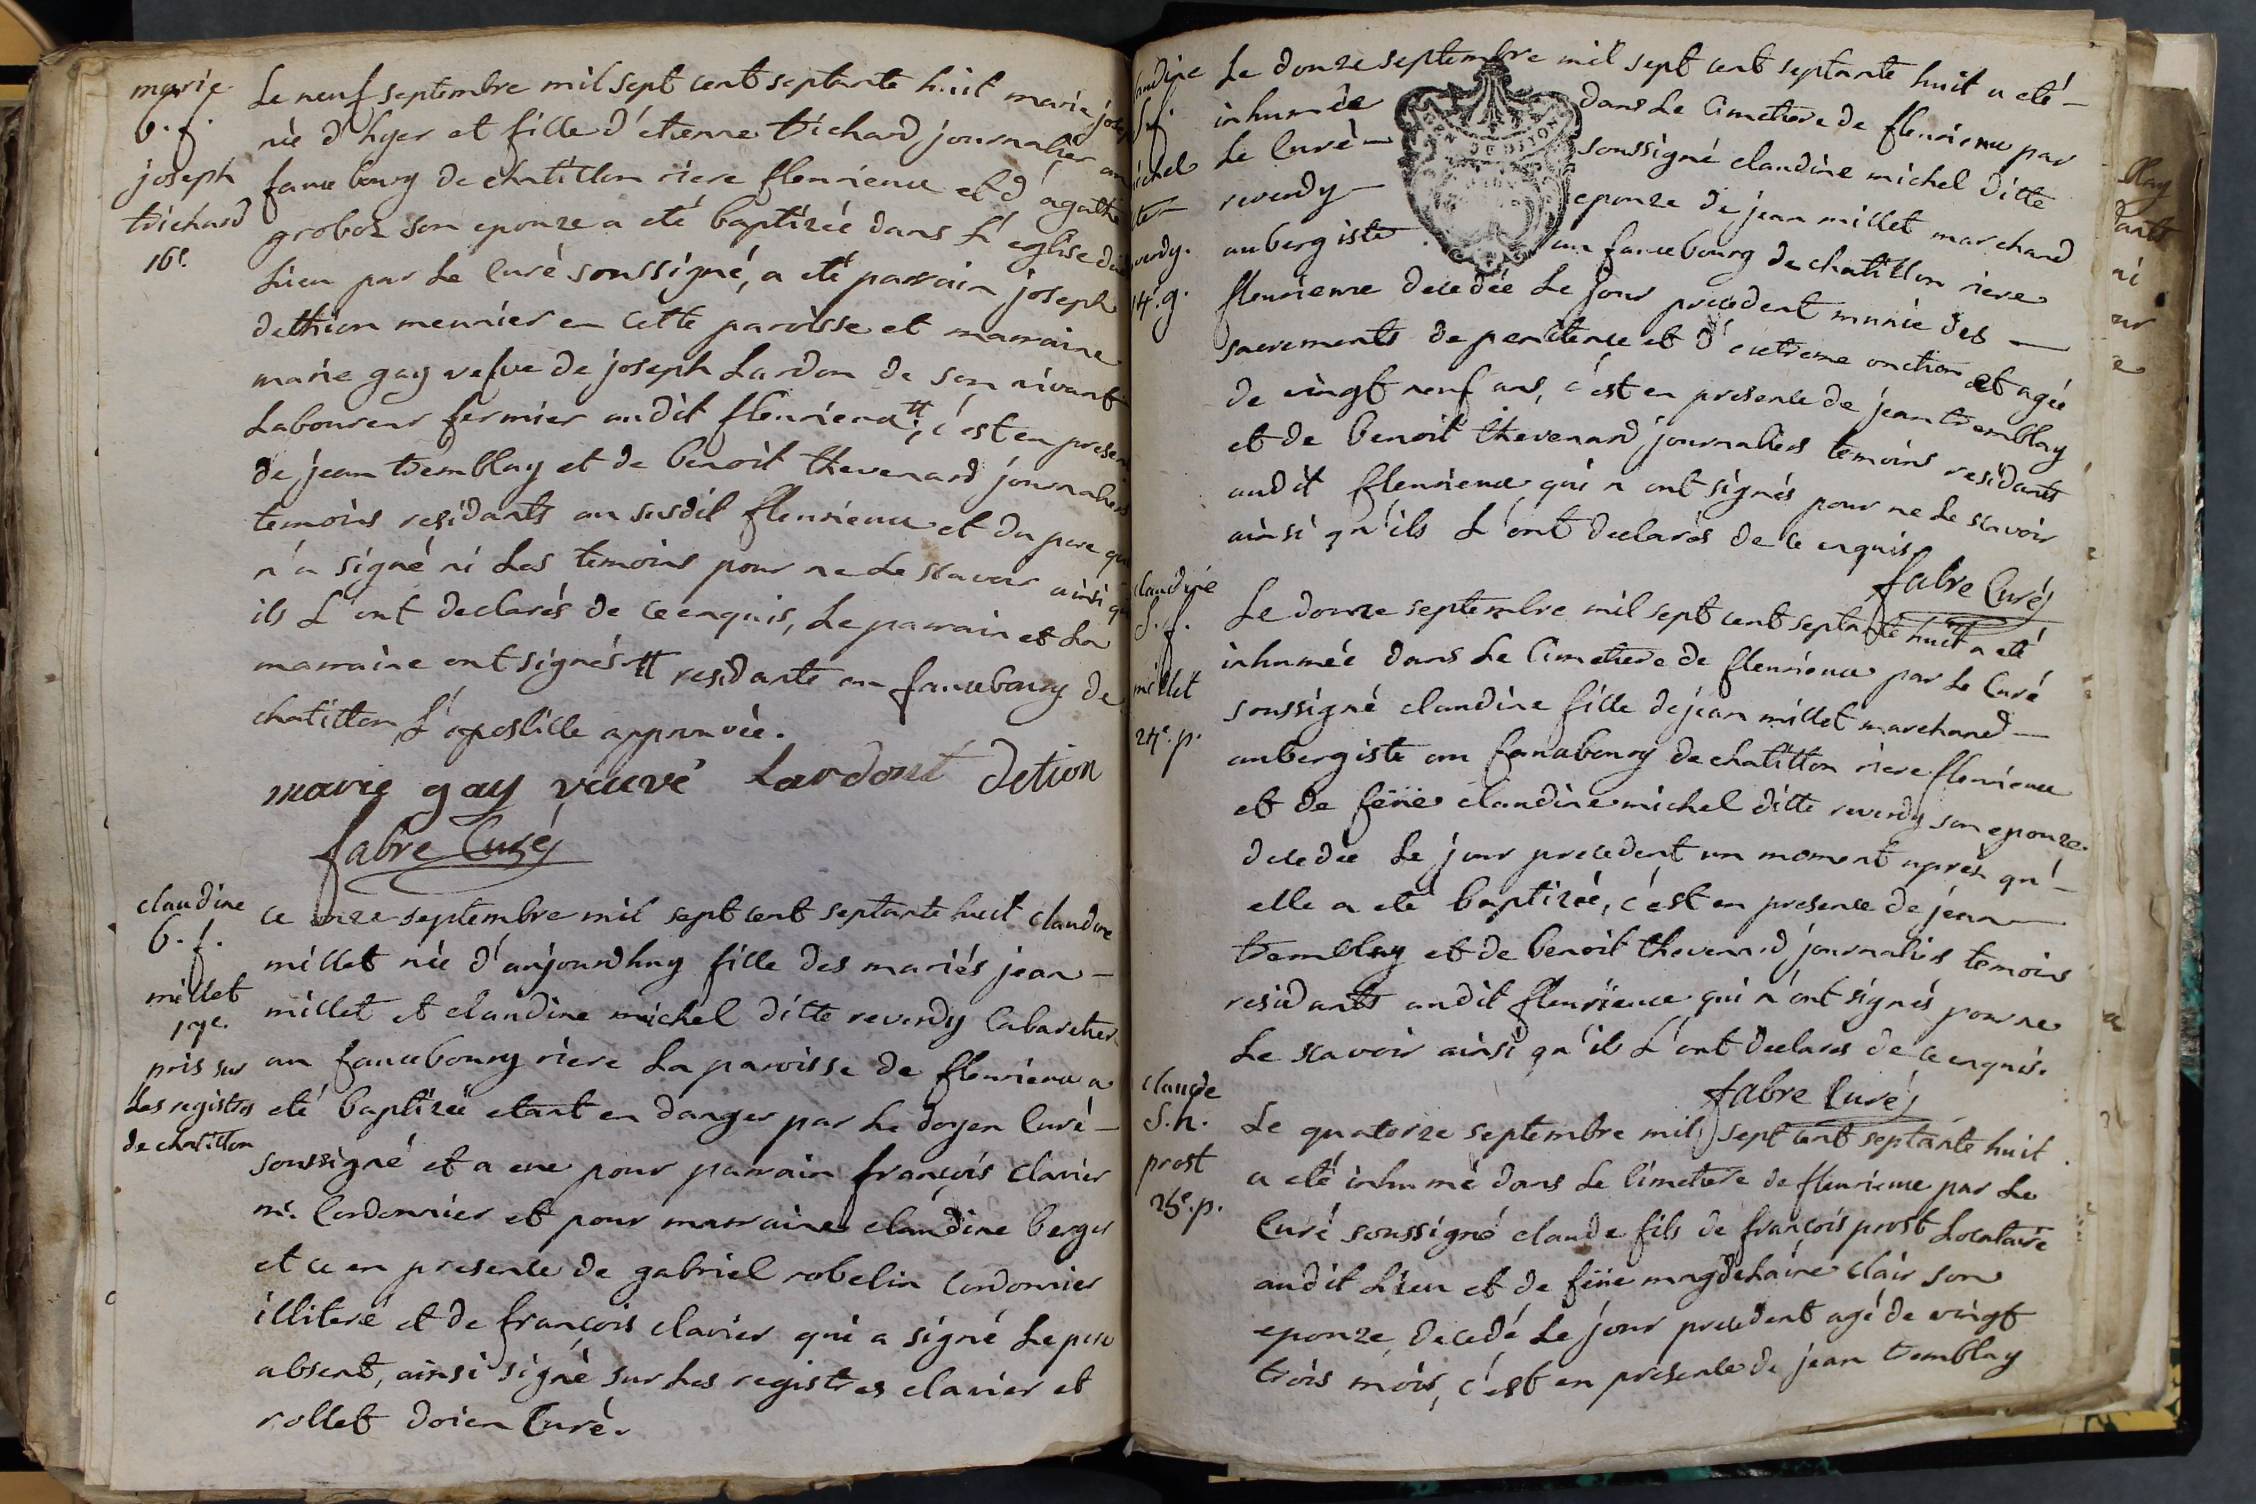 marie
b. f.
joseph
trichard
16e.
Le neuf septembre mil sept cent septante huit marie josep
née d'hyer et fille d'etienne trichard journalier au
fauxbourg de chatillon riere fleurieux et d'agathe
groboz son epouze a eté baptizée dans L'eglise dudit
Lieu par Le Curé soussigné, a eté parrain joseph
dethion meunier en cette paroisse et marraine
marie gay vefve de joseph Lardon de son vivant
Laboureur fermier audit fleurieux tt; c'est en presen
de jean tremblay et de benoit thevenard journaliers
temoins residants au susdit fleurieux et du pere qui
n'a signé ni Les temoins pour ne Le scavoir ainsi qu
ils L'ont declarés de ce enquis, Le parrain et La
marraine ont signés tt residante au fauxbourg de
chatillon, L'apostille approuvée.
marie gay veuve Lardont detion
fabre Curé
claudine
b. f.
millet
17e.
pris sur
Les registres
de chatillon
ce onze septembre mil sept cent septante huit claudine
millet née d'aujourdhuy fille des mariés jean -
millet et claudine michel ditte reverdy Cabaretier
au fauxbourg riere La paroisse de fleurieux a
eté baptizée etant en danger par Le doyen Curé -
soussigné et a eue pour parrain françois clavier
me. Cordonnier et pour marraine claudine berger
et ce en presence de gabriel robelin cordonnier
illiteré et de françois clavier qui a signé Le pere
absent, ainsi signé sur Les registres clavier et
rollet doien Curé.
audine
S. f.
ichel
tte -
verdy.
14e. g.
Le douze septembre mil sept cent septante huit a eté -
inhumée dans Le Cimetiere de fleurieux par
Le Curé - soussigné claudine michel ditte
reverdy - epouze de jean millet marchand
aubergiste au fauxbourg de chatillon riere
fleurieux decedée Le jour precedent munie des -
sacrements de penitence et d'extreme onction et agée
de vingt neuf ans, c'est en presence de jean tremblay
et de benoit thevenard journaliers temoins residants
audit fleurieux qui n'ont signés pour ne Le scavoir
ainsi qu'ils L'ont declarés de ce enquis
fabre Curé
claudine
S. f.
millet
24e. p.
Le douze septembre mil sept cent septante huit a eté
inhumée dans Le Cimetiere de fleurieux par Le Curé
soussigné claudine fille de jean millet marchand -
aubergiste au fauxbourg de chatillon riere fleurieux
et de feüe claudine michel ditte reverdy son epouze
decedée Le jour precedent un moment après qu'-
elle a eté baptizée, c'est en presence de jean -
tremblay et de benoit thevenard journaliers temoins
residants audit fleurieux qui n'ont signés pour ne
Le scavoir ainsi qu'ils L'ont declarés de ce enquis.
fabre Curé
claude
S. h.
prost
25e. p.
Le quatorze septembre mil sept cent septante huit
a eté inhumé dans Le Cimetiere de fleurieux par Le
Curé soussigné claude fils de françois prost Locataire
audit Lieu et de feüe magdelaine clair son
epouze decedé Le jour precedent agé de vingt
trois mois, c'est en presence de jean tremblay